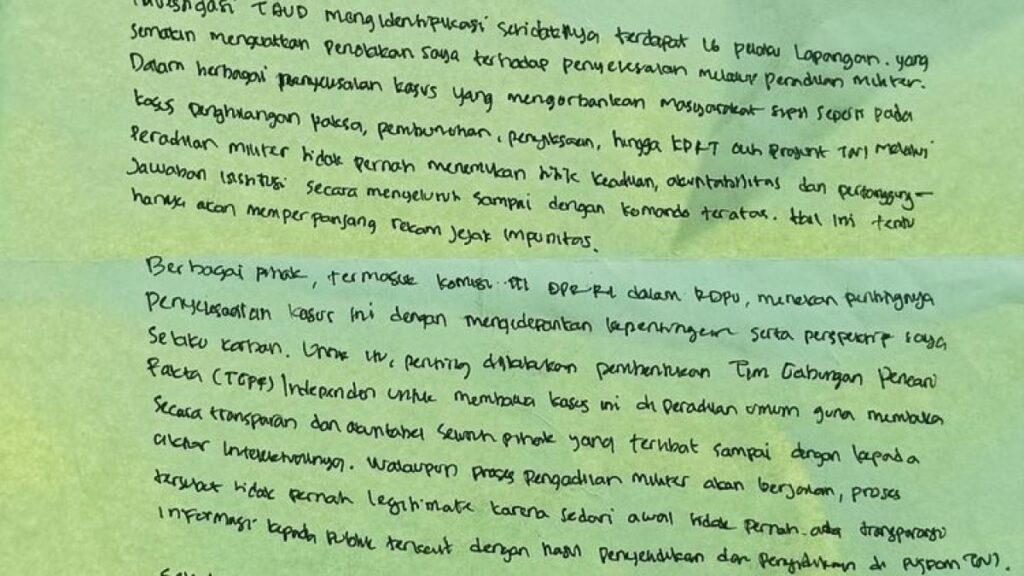 Investigasi TAUD mengidentifikasi setidaknya terdapat 16 pelaku lapangan. yang
semakin menguatkan penolakan saya terhadap penyelesaian melalui peradilan militer.
Dalam berbagai penyelesaian kasus yang mengorbankan masyarakat sipil seperti pada
kasus penghilangan paksa, pembunuhan, penyiksaan, hingga KDRT oleh prajurit TNI melalui
Peradilan militer tidak pernah menemukan titik keadilan, akuntabilitas dan pertanggung-
Jawaban institusi secara menyeluruh sampai dengan komando teratas. Hal ini tentu
hanya akan memperpanjang rekam jejak impunitas.
Berbagai pihak, termasuk komisi III DPR RI dalam RDPU, menekan pentingnya
Penyelesaian kasus ini dengan mengedepankan kepentingan serta perspektif saya
Selaku korban. Untuk itu, penting dilakukan pembentukan Tim Gabungan Pencari
Fakta (TGPF) Independen untuk membawa kasus ini di peradilan umum guna membuka
Secara transparan dan akuntabel seluruh pihak yang terlibat sampai dengan kepada
aktor Intelektualnya. Walaupun proses Pengadilan militer akan berjalan, proses
tersebut tidak pernah legitimate karena sedari awal tidak pernah ada transparansi
Informasi kepada publik terkait dengan hasil penyelidikan dan Penyidikan di Puspom TNI.